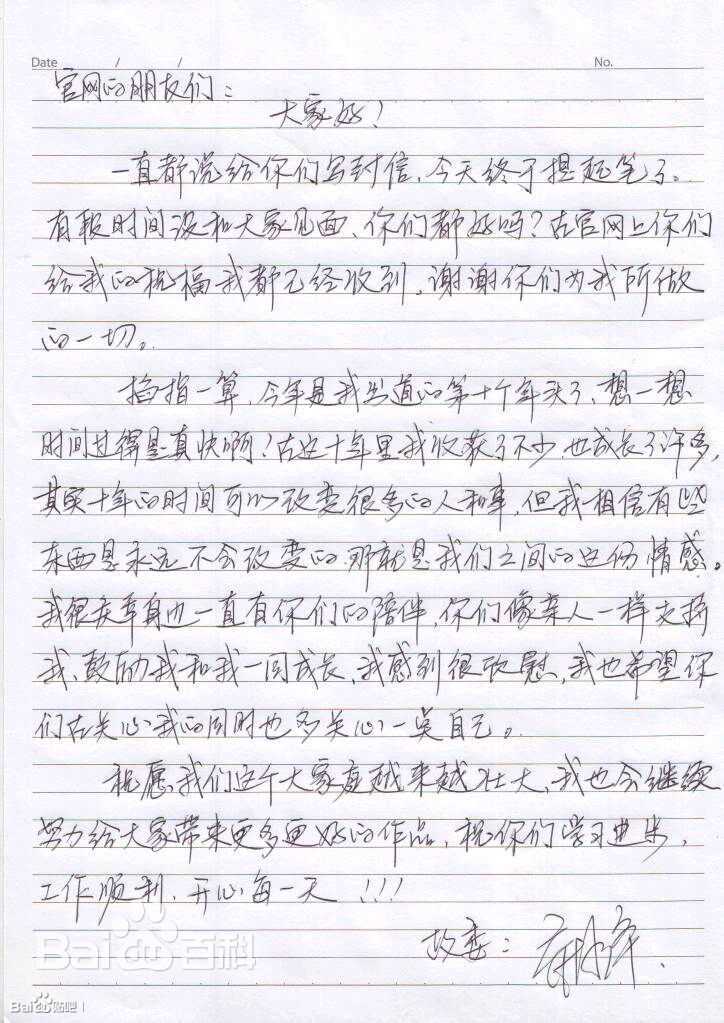 Date / / No.
官网的朋友们：
大家好！
一直都说给你们写封信，今天终于提起笔了。
有段时间没和大家见面、你们都好吗？在官网上你们
给我的祝福我都已经收到，谢谢你们为我所做
的一切。
掐指一算，今年是我出道的第十个年头了、想一想
时间过得是真快啊！在这十年里我收获了不少，也成长了许多，
其实十年的时间可以改变很多的人和事，但我相信有些
东西是永远不会改变的，那就是我们之间的这份情感。
我很庆幸身边一直有你们的陪伴，你们像亲人一样支持
我、鼓励我和我一同成长，我感到很欣慰，我也希望你
们在关心我的同时也多关心一点自己。
祝愿我们这个大家庭越来越壮大，我也会继续
努力给大家带来更多更好的作品，祝你们学习进步，
工作顺利、开心每一天！！！
Baidu百科
Baidu贴吧